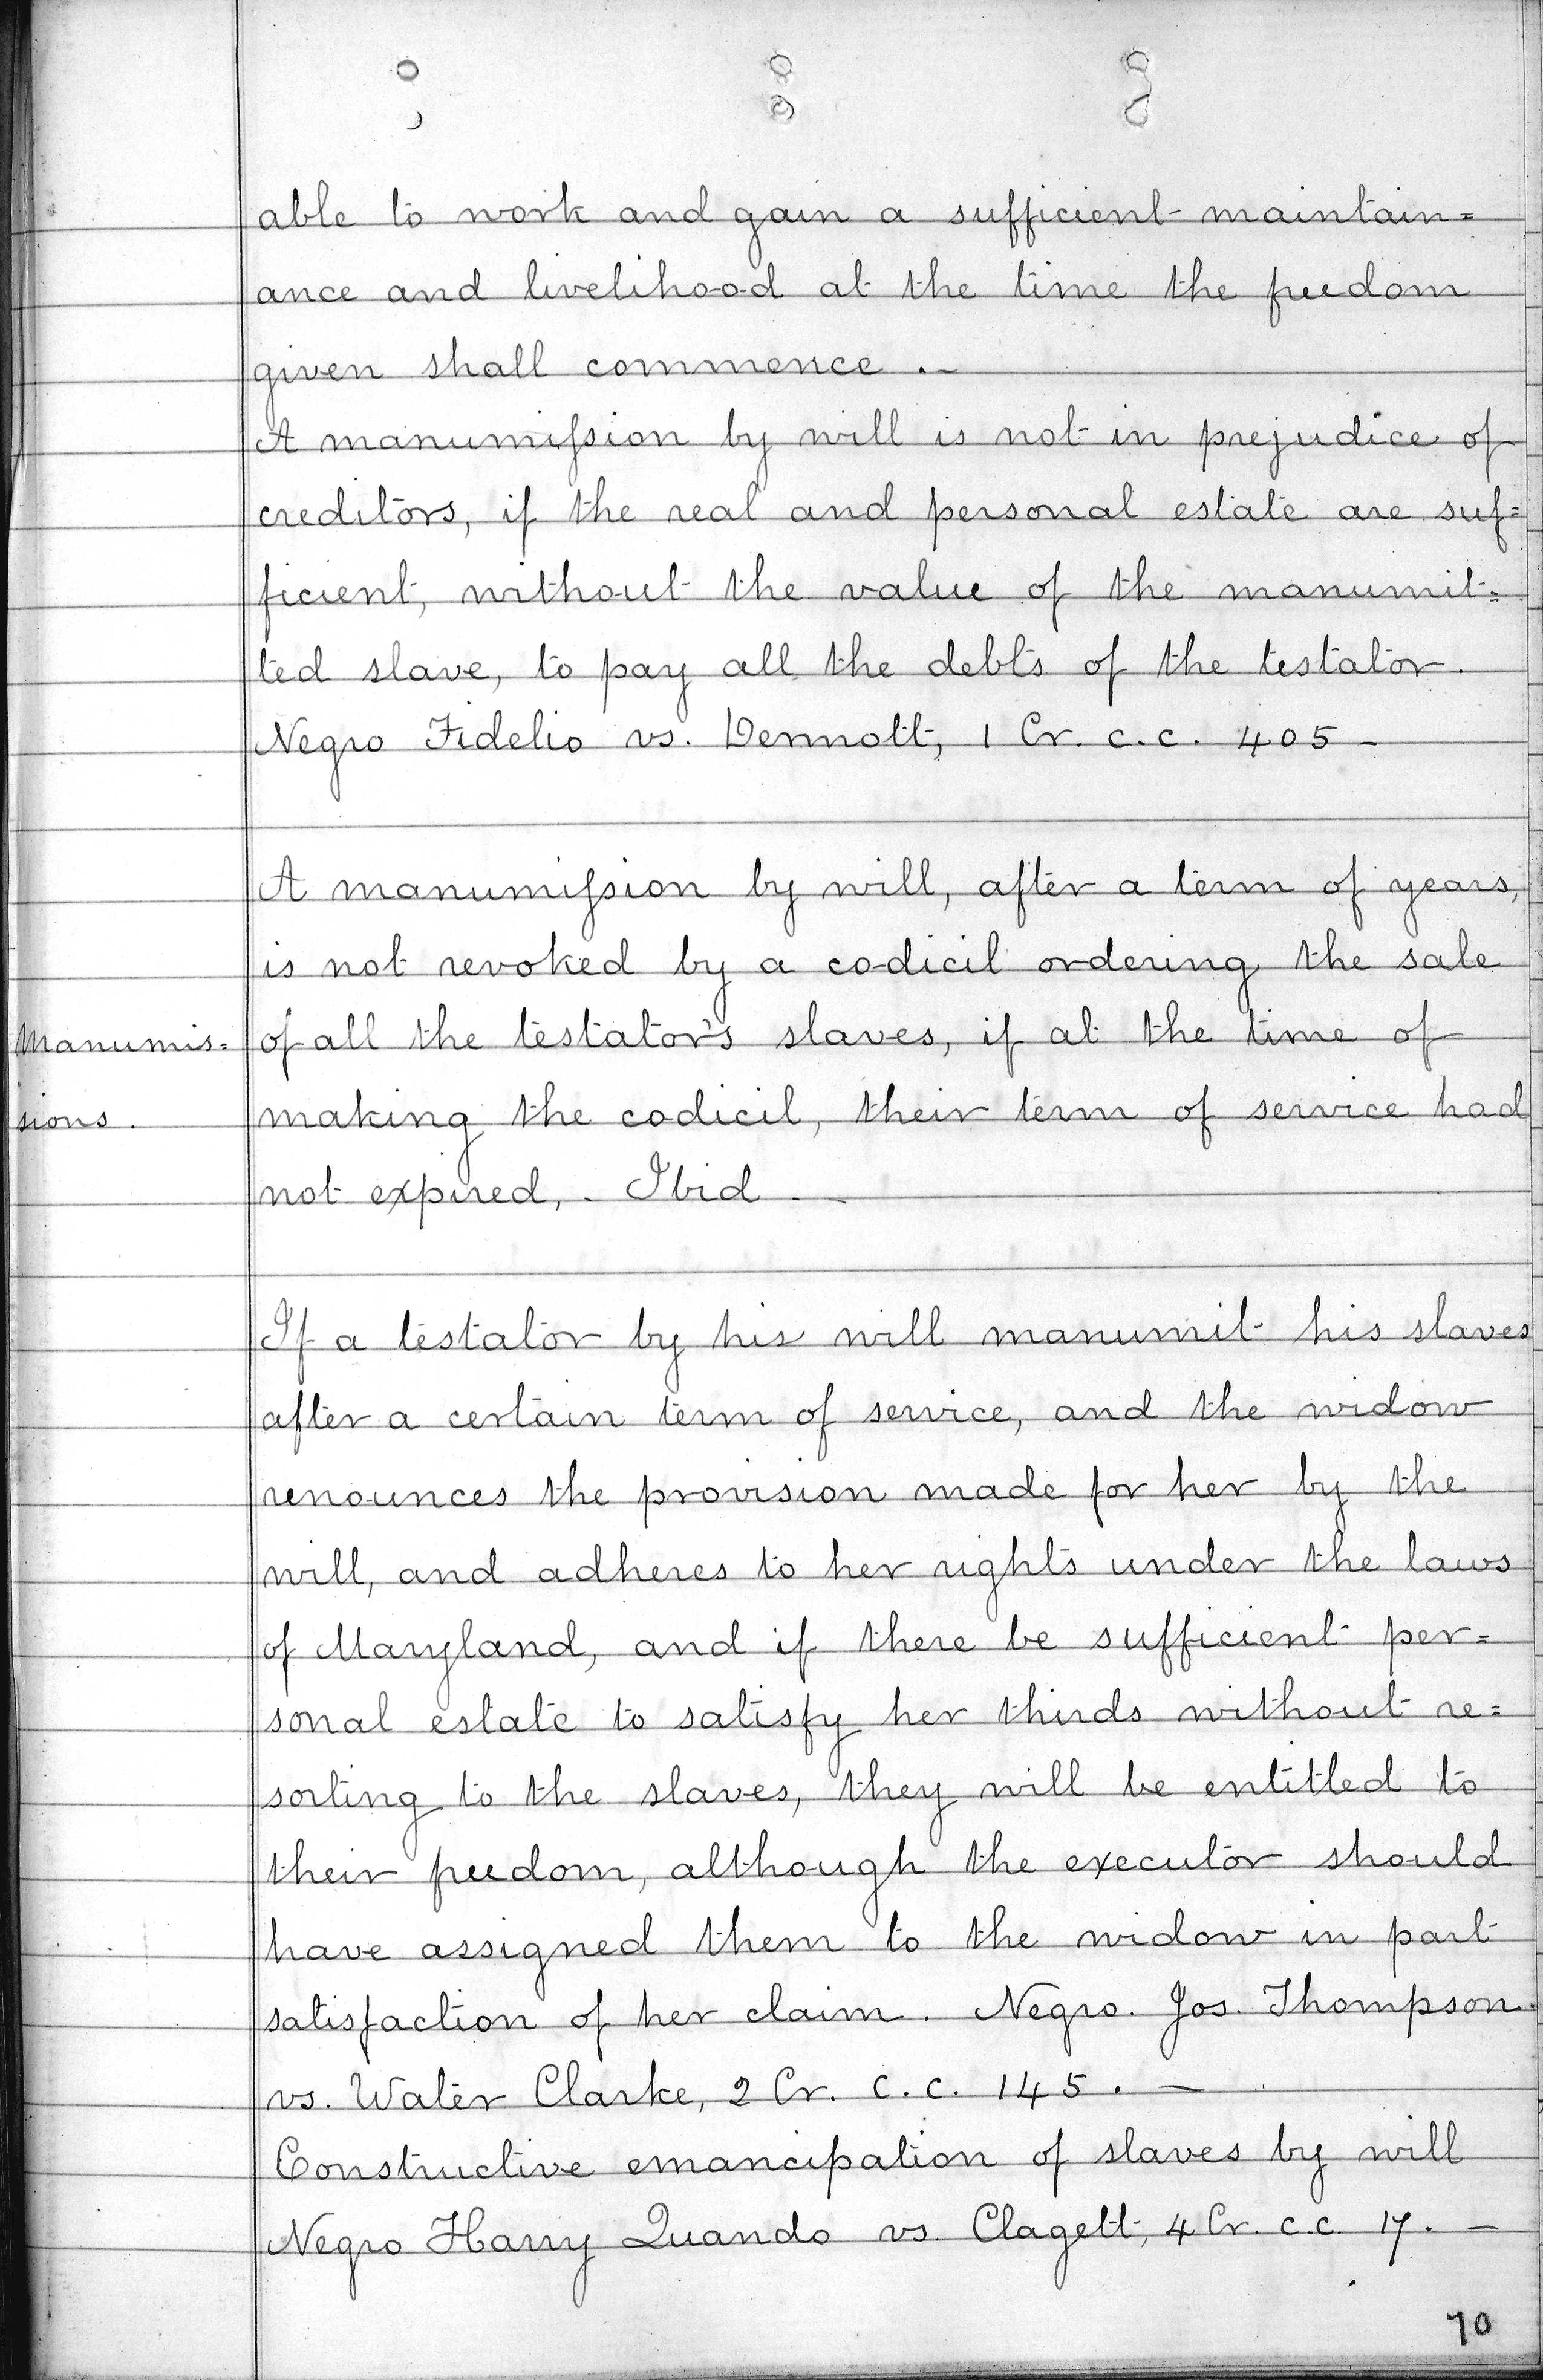 able to work and gain a sufficient maintain=
ance and livelihood at the time the freedom
given shall commence .-
A manumiſsion by will is not in prejudice of
creditors, if the real and personal estate are suf=
ficient, without the value of the manumit=
ted slave, to pay all the debts of the testator.
Negro Fidelio vs. Dermott, 1 Cr. c.c. 405 -
A manumiſsion by will, after a term of years,
is not revoked by a codicil ordering the sale
Manumis= of all the testator's slaves, if at the time of
sions. making the codicil, their term of service had
not expired, - Ibid . -
If a testator by his will manumit his slaves
after a certain term of service, and the widow
renounces the provision made for her by the
will, and adheres to her rights under the laws
of Maryland, and if there be sufficient per=
sonal estate to satisfy her thirds without re=
sorting to the slaves, they will be entitled to
their freedom, although the executor should
have assigned them to the widow in part
satisfaction of her claim. Negro. Jos. Thompson.
vs. Walter Clarke, 2 Cr. C.C. 145 . -
Constructive emancipation of slaves by will
Negro Harry Quando vs. Clagett, 4 Cr. c.c. 17. -
70